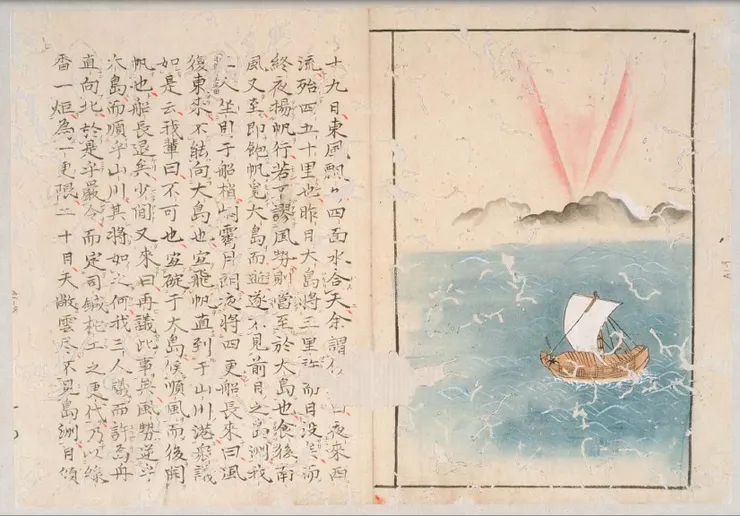 十九日東風飄々四面水合天余謂 夜來西
流殆四五十里也昨日大島將三里 而日没矣而
終夜揚帆行若不謬風勢則當至於大島也食後南
風又至即飽帆寛大島而 遂不見前日之島洲我
一人坐 于船梢 霽月 夜將四更船長來曰風
復東來不能向大島也宜飛帆直到于山川港衆議
如是云我輩曰不可也宜碇于大島俟順風而後開
帆也船長退矣少間又來曰再議此事其風勢逆于
大島而順乎山川其將如之何我三人議而許焉舟
直向北於是乎嚴令而定司鍼柁工之更代乃以線
香一炬為一更限二十日天 雲尽不見島洲日傾